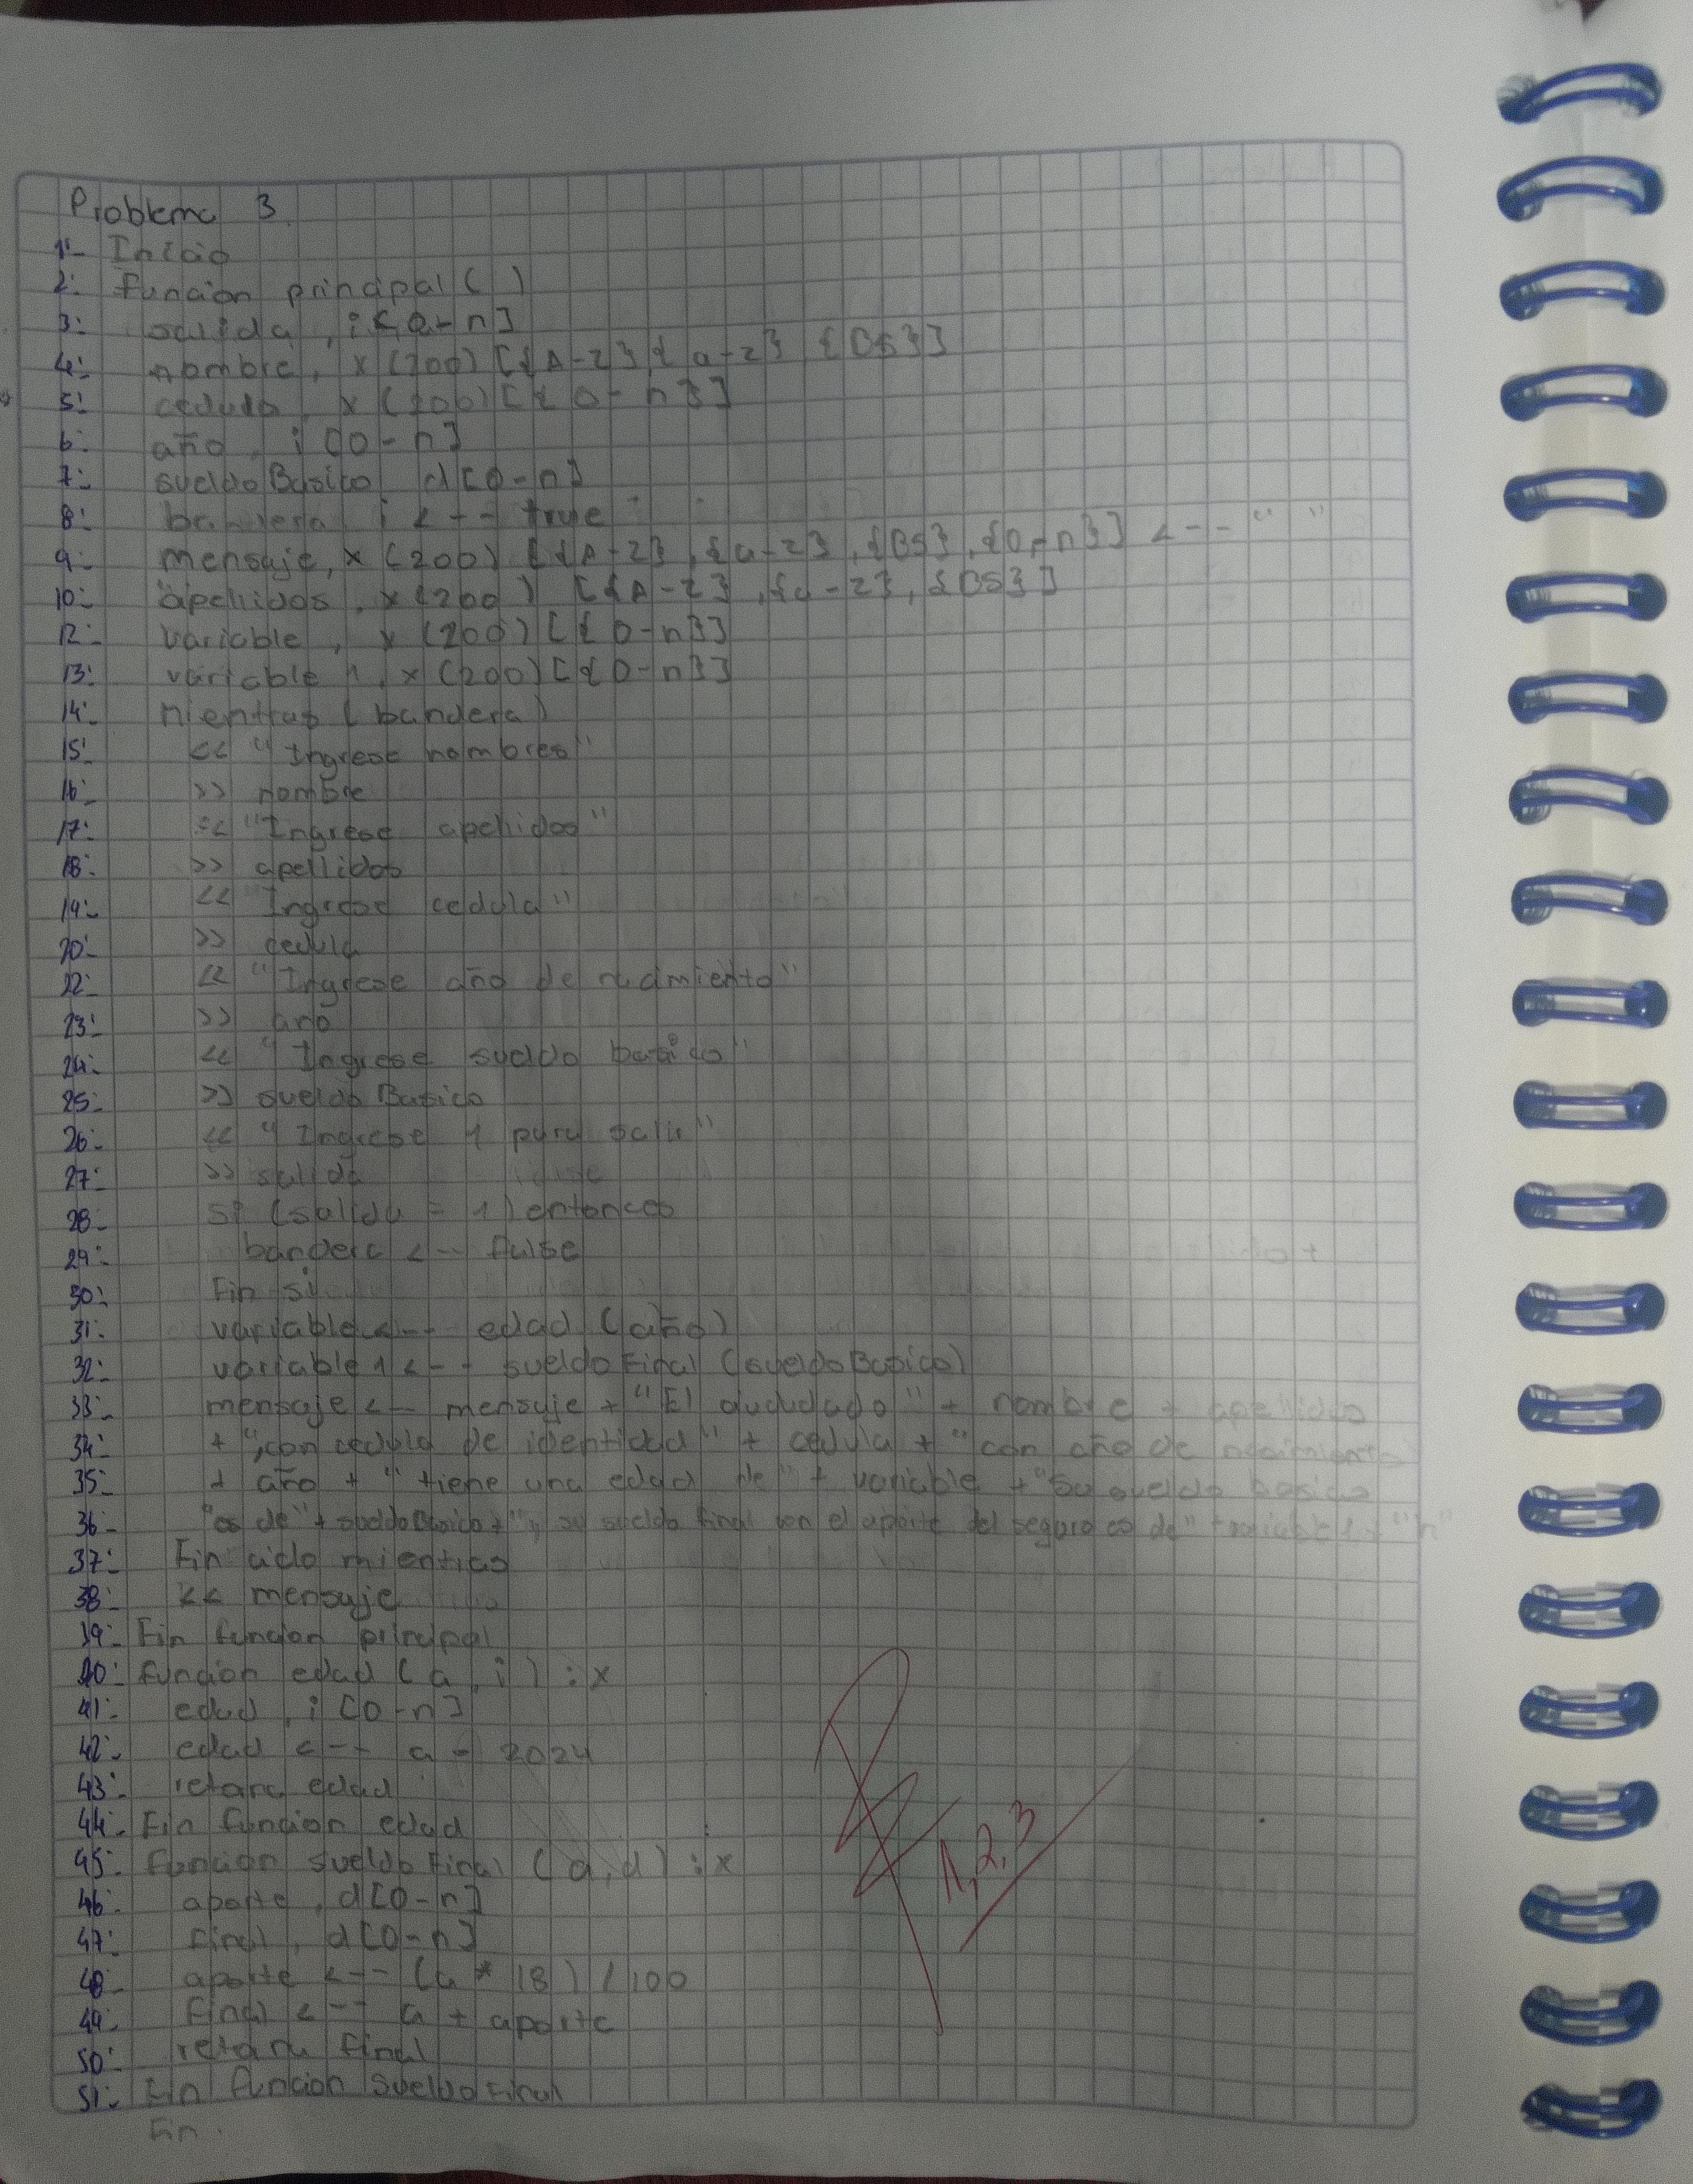 Problema 3
1:- Inicio
2: funcion principal ( )
3: salida, i [0-n]
4: nombre, x (200) [{A-z},{a-z} {BS}]
5: cedula, x (200) [{0-n}]
6: año, i [0-n]
7: sueldoBasico d[0-n]
8: bandera i <-- true
9: mensaje, x (200) [{A-z}, {a-z}, {BS}, {0-n}] <-- " "
10: apellidos, x (200) [{A-z}, {a-z}, {BS}]
12: variable, x (200) [{0-n}]
13: variable 1, x (200) [{0-n}]
14: mientras (bandera)
15: << "Ingrese nombres"
16: >> nombre
17: << "Ingrese apellidos"
18: >> apellidos
19: << "Ingrese cedula"
20: >> cedula
22: << "Ingrese año de nacimiento"
23: >> año
24: << "Ingrese sueldo basico"
25: >> sueldoBasico
26: << "Ingrese 1 para salir"
27: >> salida
28: si (salida = 1) entonces
29: bandera <-- false
30: Fin si
31: variable <-- edad (año)
32: variable 1 <-- sueldoFinal (sueldoBasico)
33: mensaje <-- mensaje + "El" + nombre + apellidos
34: + ",con cedula de identidad" + cedula + "con año de nacimiento
35: + año + "tiene una edad de" + variable + "Su sueldo basico
36: "es de" + sueldoBasico + ", su sueldo final con el aporte del seguro es de" + variable1 + "n"
37: Fin ciclo mientras
38: << mensaje
39: Fin funcion principal
40: funcion edad (a, i) : x
41: edad, i [0-n]
42: edad <-- a - 2024
43: retorna edad
44: Fin funcion edad
45: funcion sueldo Final (a, d) : x
46: aporte, d[0-n]
47: final, d[0-n]
48: aporte <-- (a * 18) / 100
49: final <-- a + aporte
50: retorna final
51: Fin funcion Sueldo Final
Fin.
1,2,3